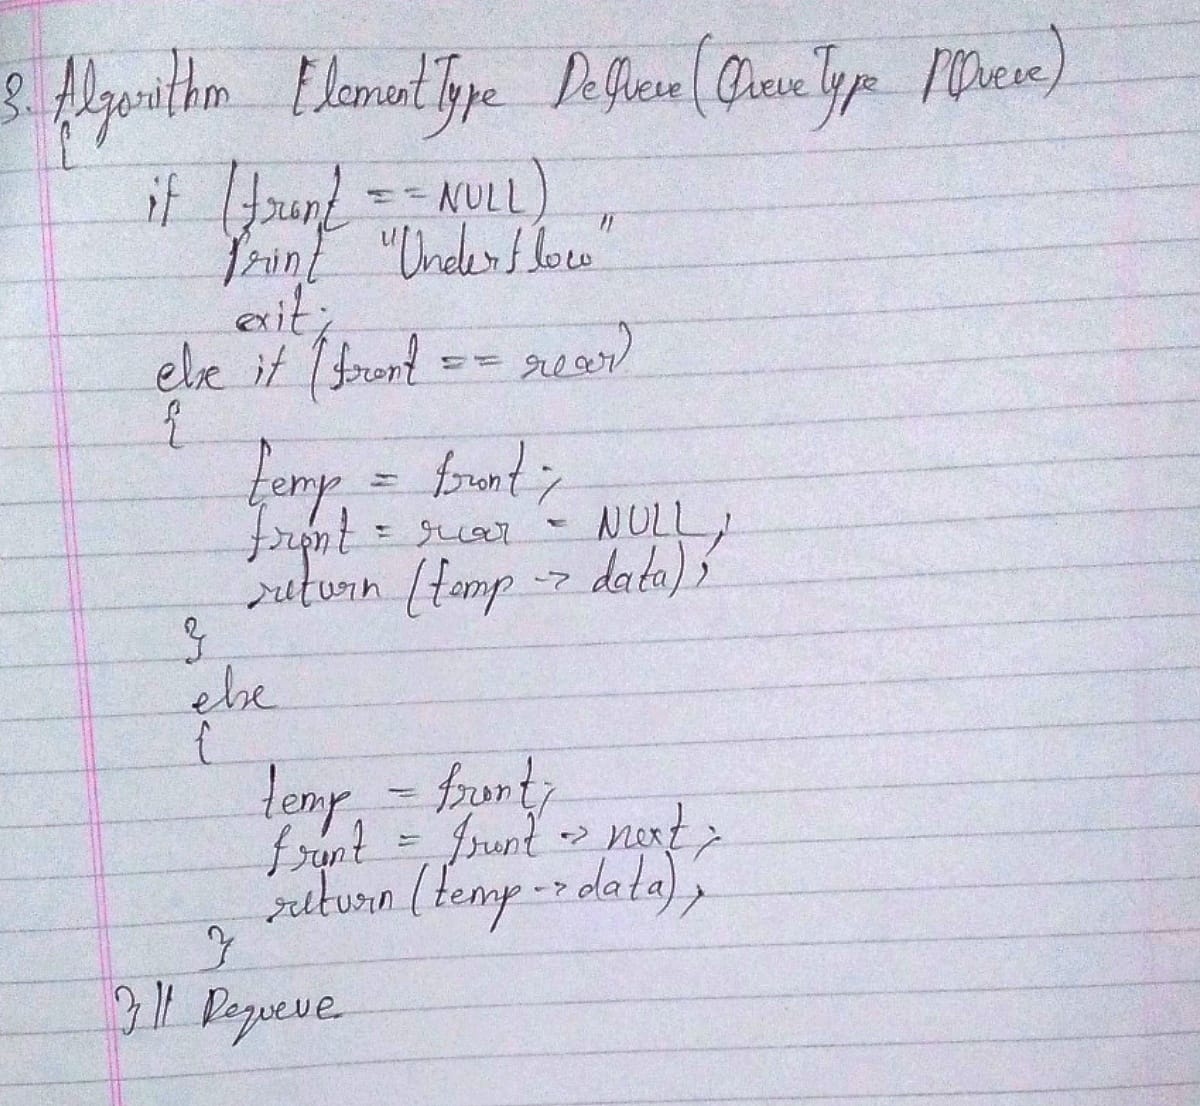 3. Algorithm ElementType DeQueue (QueueType PQueue)
{
if (front == NULL)
Print "Underflow"
exit;
else if (front == rear)
{
temp = front;
front = rear = NULL;
return (temp -> data);
}
else
{
temp = front;
front = front -> next;
return (temp -> data);
}
} // Dequeue